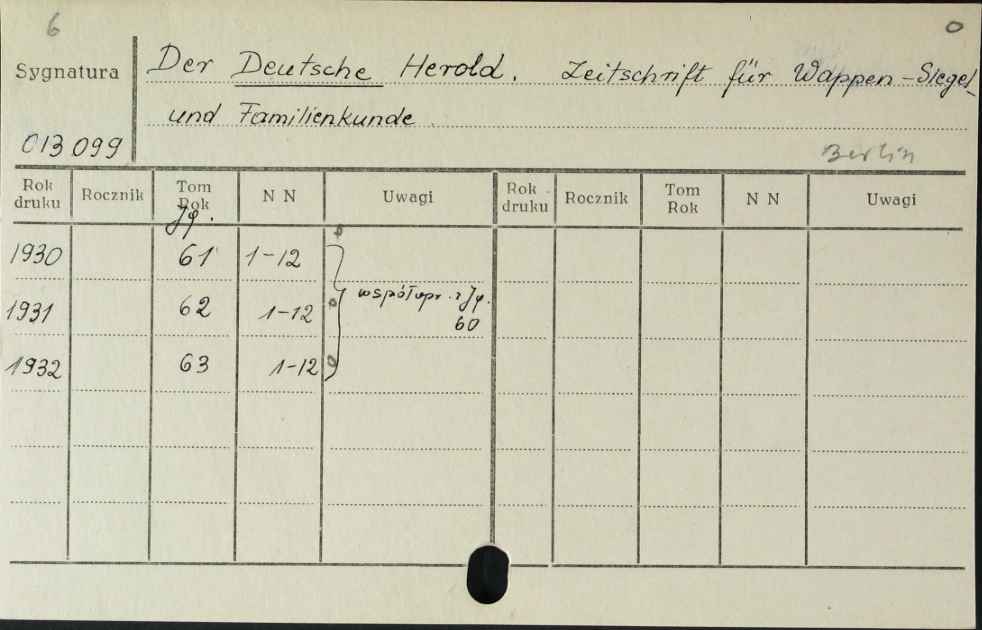 6
0
Sygnatura
Der Deutsche Herold. Zeitschrift für Wappen-Siegel-
und Familienkunde
013 099
Berlin
Rok druku Rocznik Tom Rok N N Uwagi Rok druku Rocznik Tom Rok N N Uwagi
Jg.
1930 61 1-12
współopr. z Jg.
1931 62 1-12
60
1932 63 1-12